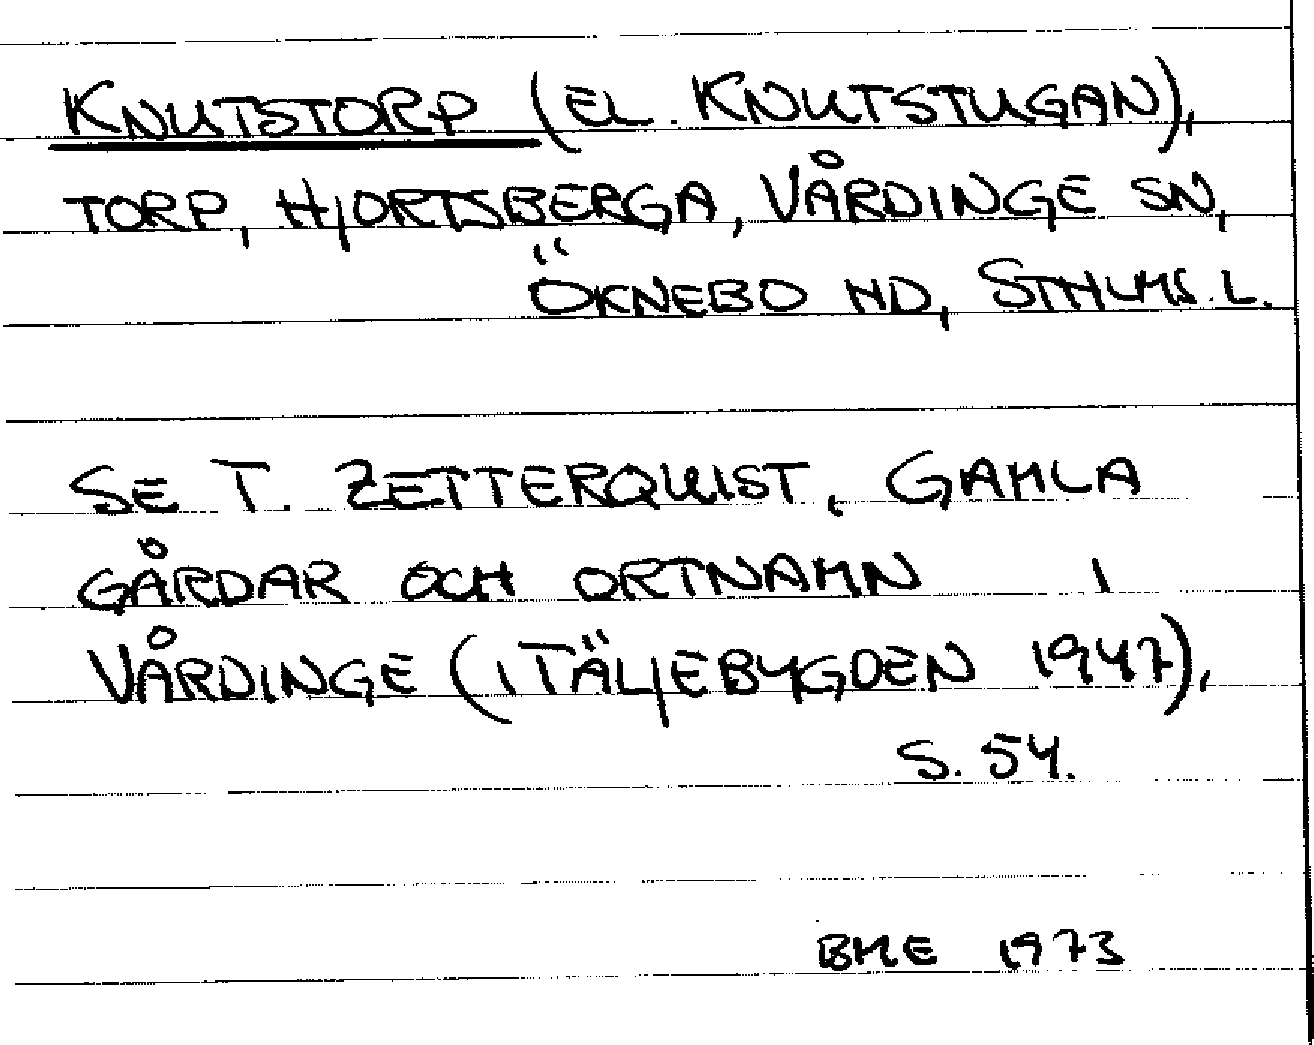 KNUTSTORP (EL. KNUTSTUGAN),
TORP, HJORTSBERGA, VÅRDINGE SN,
ÖKNEBO HD, STHLMS. L.
SE T. ZETTERQUIST, GAMLA
GÅRDAR OCH ORTNAMN I
VÅRDINGE (I TÄLJEBYGDEN 1947),
S. 54.
BME 1973